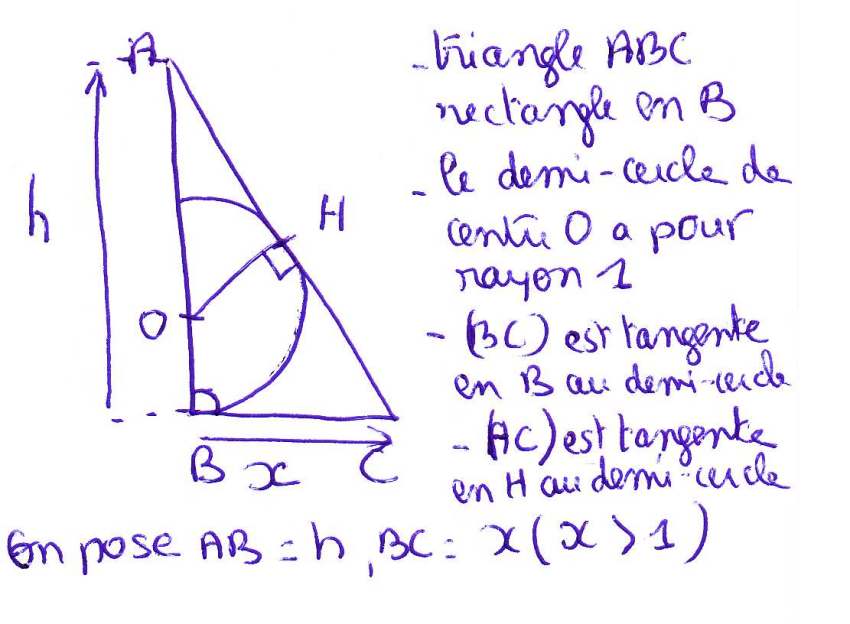 A
- triangle ABC
rectangle en B
h
H
- le demi-cercle de
centre O a pour
rayon 1
O
- (BC) est tangente
en B au demi-cercle
- (AC) est tangente
en H au demi-cercle
B x C
On pose AB = h, BC = x (x > 1)